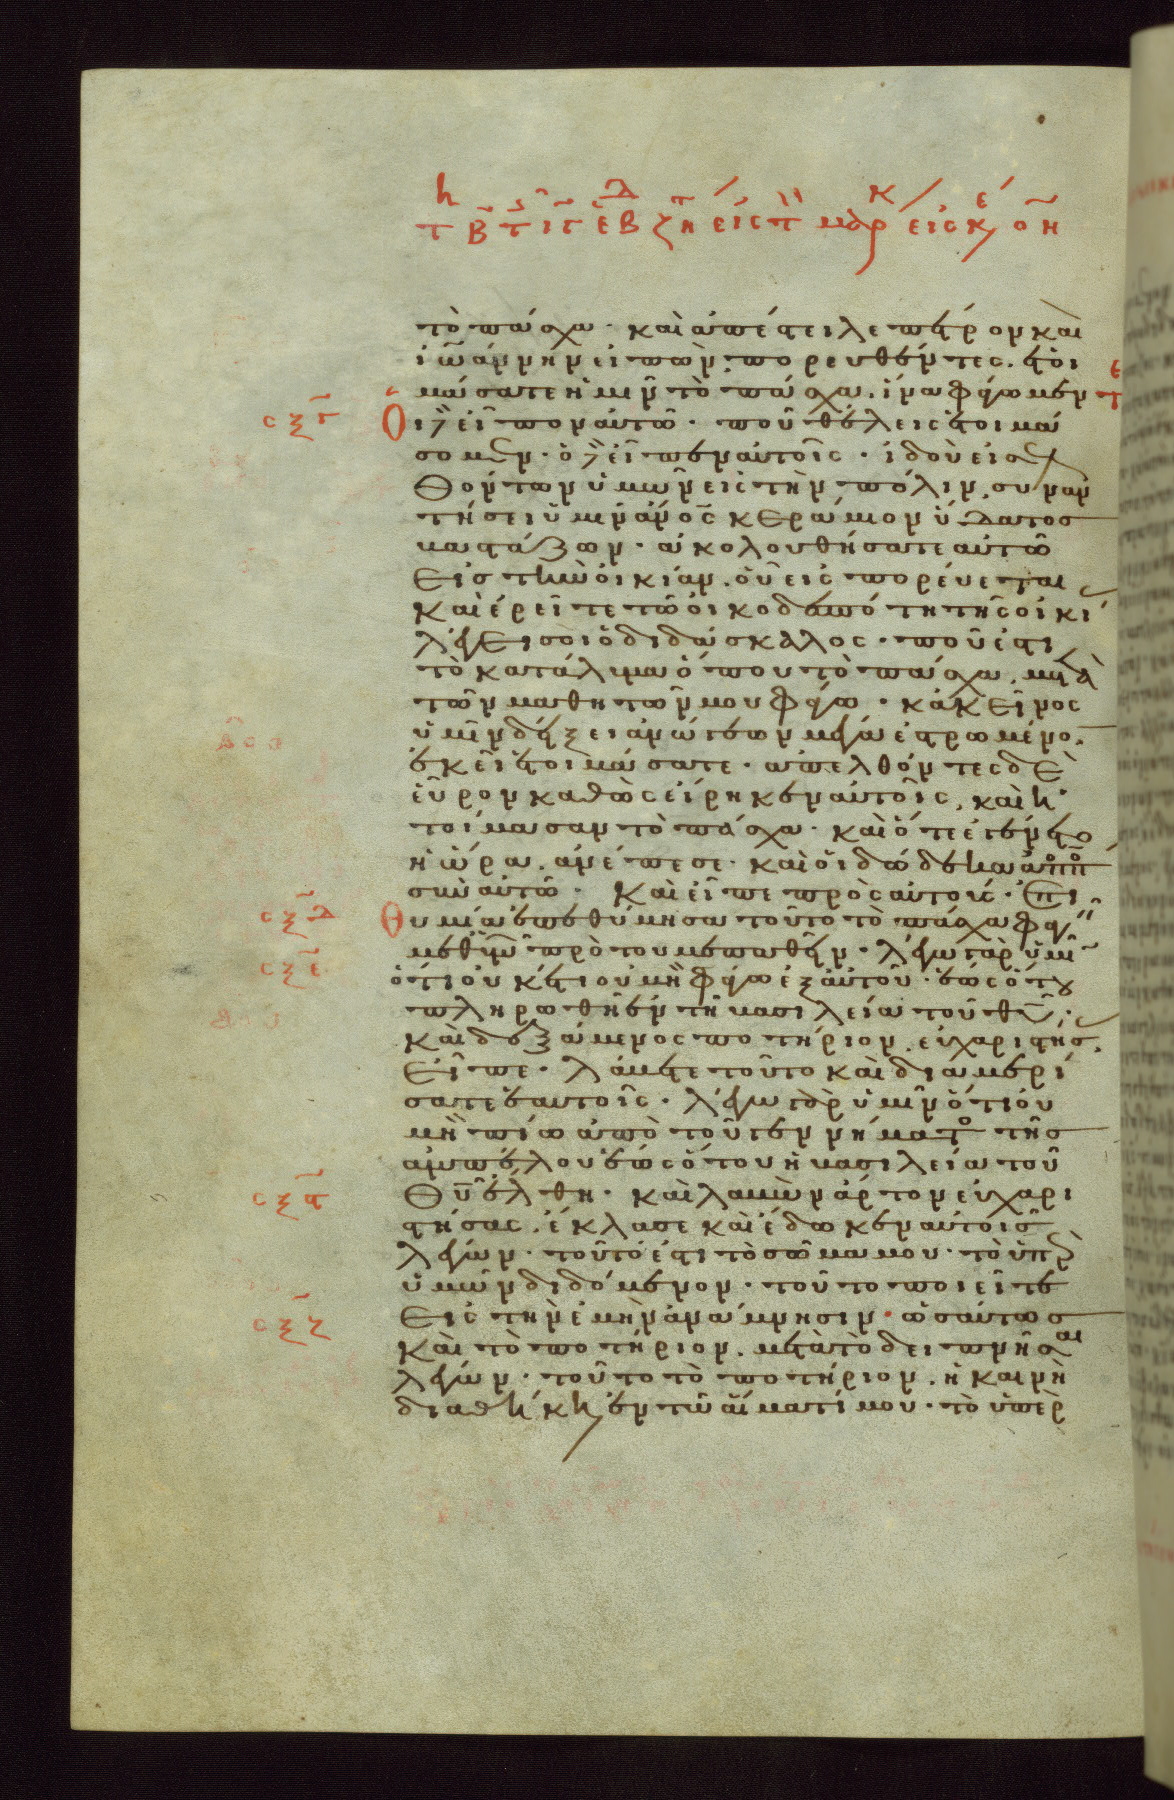 τὸ πάσχα· καὶ ἀπέστειλε πέτρον καὶ
ἰω̅άννην εἰπών· πορευθέντες ἑτοι
μάσατε ἡμῖν τὸ πάσχα. ἵνα φάγωμεν
σξγ Οἱ δὲ εἶπον αὐτῶ· ποῦ θέλεις ἑτοιμά
σομεν· ὁ δὲ εἶπεν αὐτοῖς· ἰδοὺ εἰσελ
θόντων ὑμῶν εἰς τὴν πόλιν, συναν
τήσει ὑμῖν ἄνο̅ς κεράμιον ὕδατος
βαστάζων· ἀκολουθήσατε αὐτῶ
εἰς τὴν οἰκίαν. οὗ εἰσπορεύεται
καὶ ἐρεῖτε τῶ οἰκοδεσπότη τῆς οἰκί
λέγει σοι ὁ διδάσκαλος· ποῦ ἐστι
τὸ κατάλυμα ὅπου τὸ πάσχα, μετὰ
τῶν μαθητῶν μου φάγω· κἀκεῖνος
ὑμῖν δείξει ἀνώγεων μέγα ἐστρωμένο.
ἐκεῖ ἑτοιμάσατε· ἀπελθόντες δὲ
εὗρον καθὼς εἴρηκεν αὐτοῖς, καὶ ἡ
τοίμασαν τὸ πάσχα· καὶ ὅτε ἐγένετο
ἡ ὥρα. ἀνέπεσε· καὶ οἱ δώδεκα
σὺν αὐτῶ· Καὶ εἶπε πρὸς αὐτούς· Ἐπι
σξδ θυμία ἐπεθύμησα τοῦτο τὸ πάσχα φαγ
σξε μεθ' ὑμῶν πρὸ του με παθεῖν· λέγω γὰρ ὑμῖ
ὅτι οὐκέτι οὐ μὴ φάγω ἐξ αὐτοῦ· ἕως ὅτου
πληρωθῆ ἐν τῆ βασιλεία τοῦ θυ̅·
καὶ δεξάμενος ποτήριον, εὐχαριστήσ.
εἶπε· λάβετε τοῦτο καὶ διαμερί
σατε ἑαυτοῖς· λέγω γὰρ ὑμῖν ὅτι οὐ
μὴ πίω ἀπὸ τοῦ γεννήματο τῆς
ἀμπέλου ἕως ὅτου ἡ βασιλεία τοῦ
σξς θυ̅ ἔλθη· καὶ λαβὼν ἄρτον εὐχαρι
στήσας, ἔκλασε καὶ ἔδωκεν αὐτοῖς
λέγων· τοῦτό ἐστι τὸ σῶμα μου· τὸ ὑπὲρ
ὑμῶν διδόμενον· τοῦτο ποιεῖτε
σξζ εἰς τὴν ἐμὴν ἀνάμνησιν· ὡσαύτως
καὶ τὸ ποτήριον. μετὰ τὸ δειπνῆσαι
λέγων· τοῦτο τὸ ποτήριον, ἡ καινὴ
διαθήκη ἐν τῶ αἵματί μου· τὸ ὑπὲρ